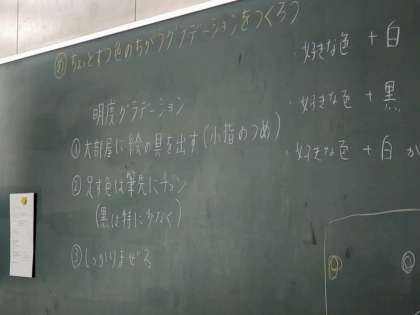 め ちょっとずつ色のちがうグラデーションをつくろう
明度グラデーション
① 大部屋に絵の具を出す(小指のつめ)
② 足す色は筆先にチョン
(黒は特に少なく)
③ しっかりまぜる
・好きな色 + 白
・好きな色 + 黒
・好きな色 + 白 か